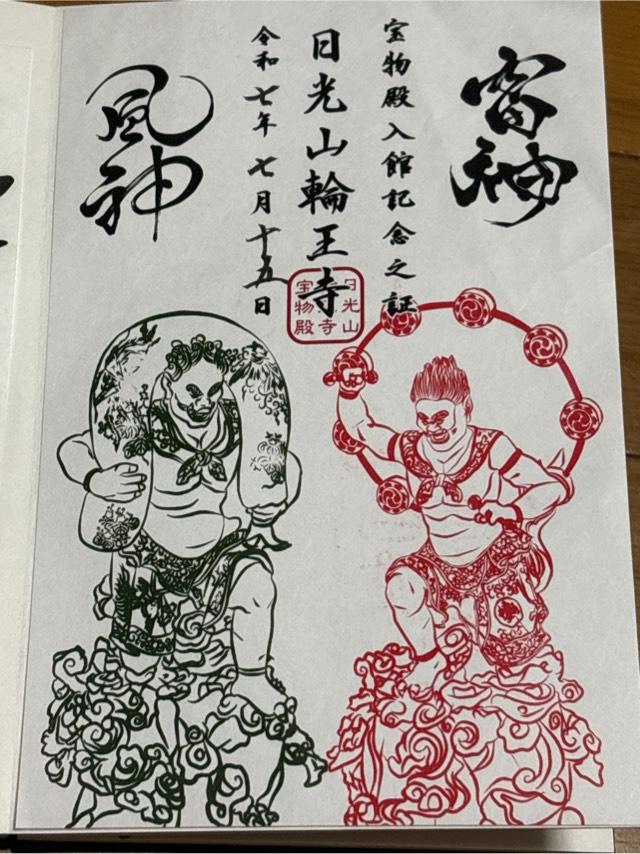 雷神
宝物殿入館記念之証
日光山輪王寺
令和七年七月十五日
風神
日光山
寺
宝物殿